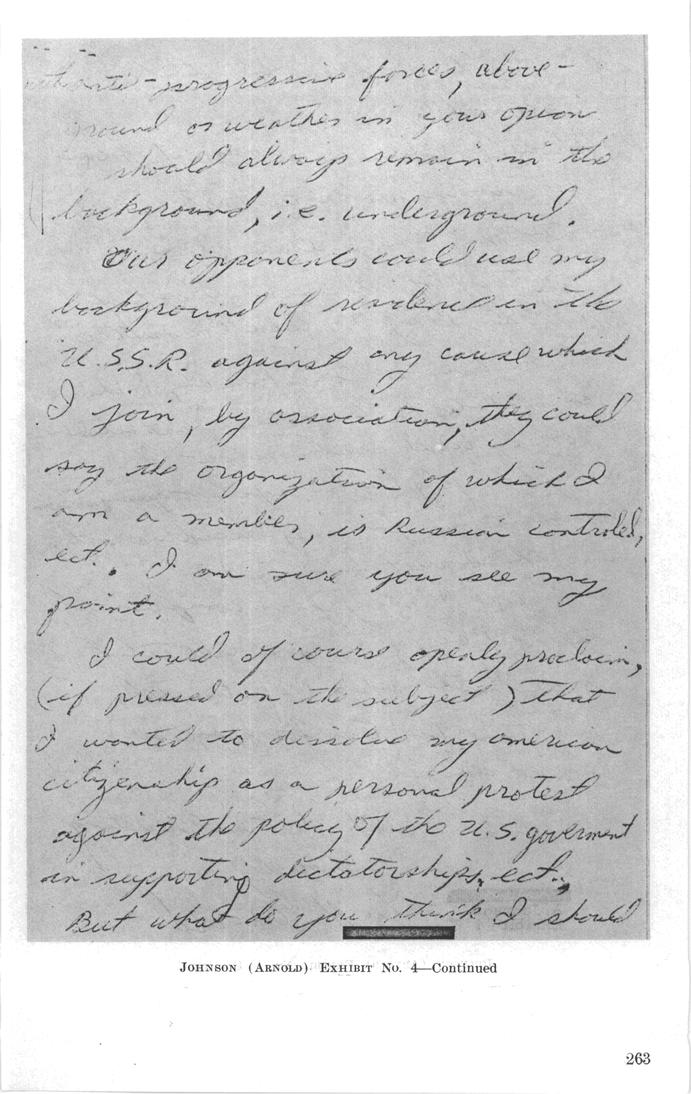 anti-progressive forces, above-
ground or weather in your opion
should always remain in the
background, i.e. underground.
Our opponents could use my
background of residence in the
U.S.S.R. against any cause which
I join, by association, they could
say the organization of which I
am a member, is Russian controled,
ect. I am sure you see my
point.
I could of course openly proclaim,
(if pressed on the subject) that
I wanted to dissolve my american
citizenship as a personal protest
against the policy of the U.S. goverment
in supporting dictatorships, ect.,
But what do you think I should
JOHNSON (ARNOLD) EXHIBIT No. 4—Continued
263